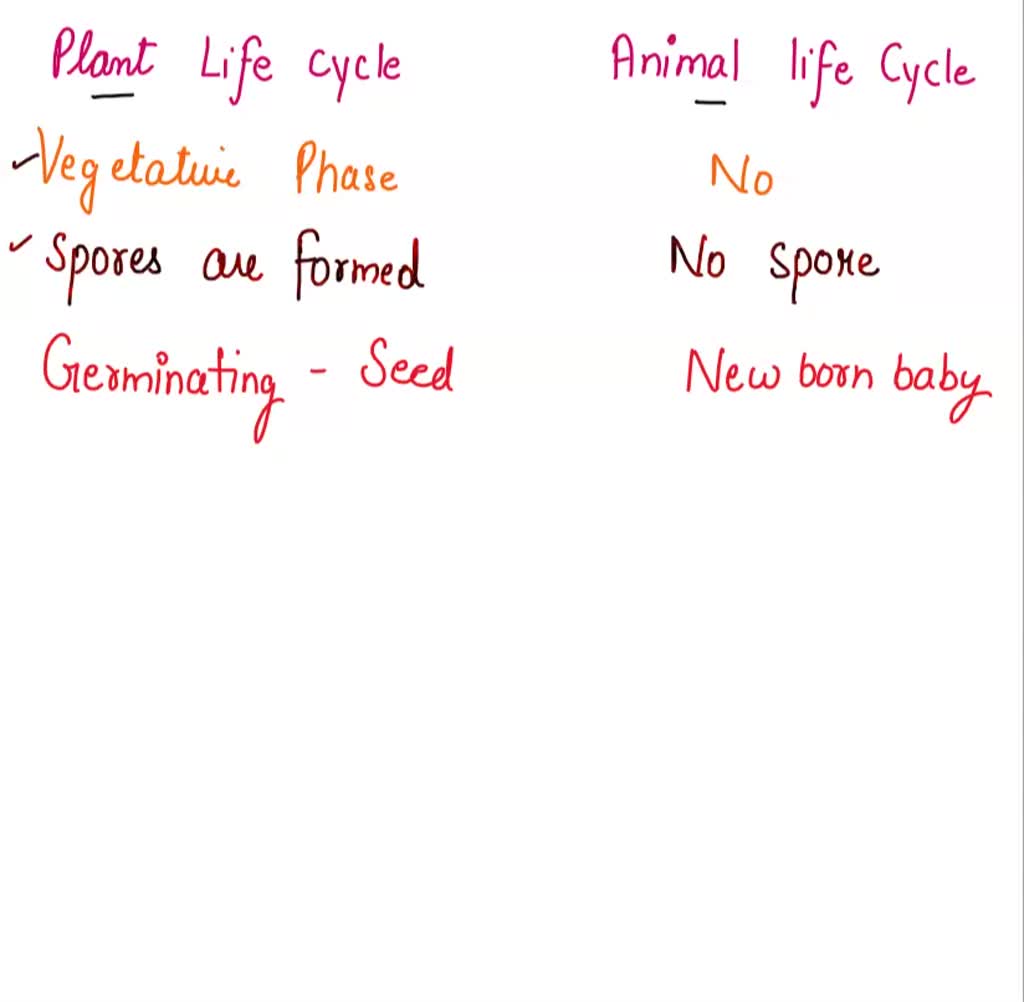 Plant Life cycle Animal life Cycle
Vegetative Phase No
Spores are formed No spore
Germinating - Seed New born baby